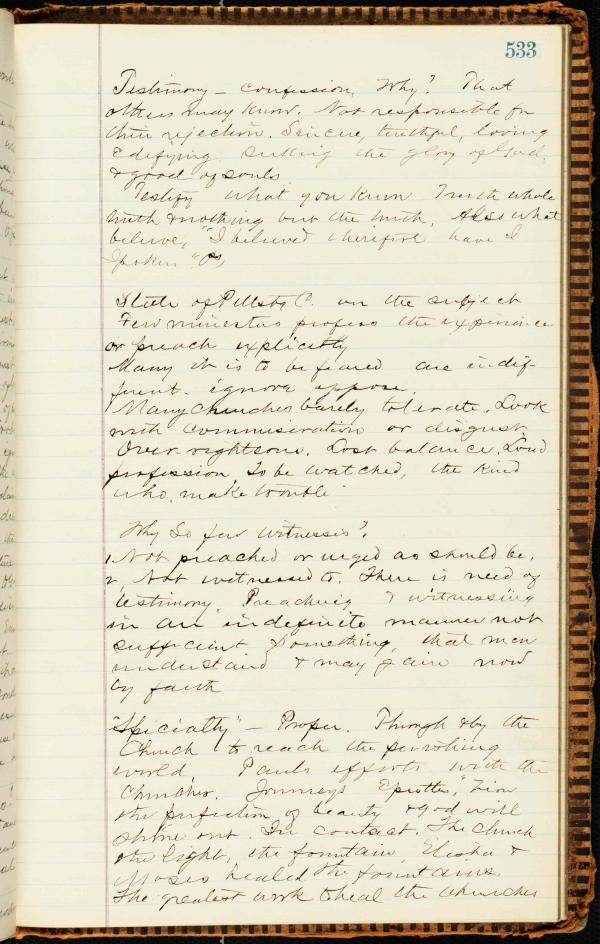 533
Testimony — confession, Why? That
others may know. Not responsible for
their rejection. Sincere, truthful, loving
& edifying seeking the glory of God
& good of souls.
Testify what you know Truth whole
truth & nothing but the truth. Also what
believe, "I believed therefore have I
spoken" Ps
State of Pittsbg C. on the subject
Few ministers profess the experience
or preach explicitly
Many it is to be feared are indif-
ferent. ignore oppose.
Many churches barely tolerate. Look
with commiseration or disgust
Over-righteous. Lost balance. Loud
profession to be watched, the kind
who make trouble
Why so few witnesses?
1 Not preached or urged as should be.
2 Not witnessed to. There is need of
testimony. Preaching & witnessing
in an indefinite manner not
sufficient Something that men
understand & may gain now
by faith
"Specialty" — Proper. Through & by the
Church to reach the perishing
world. Pauls efforts with the
churches. Journeys Epistles, "Zion
the perfection of beauty & God will
shine out. In contact. The church
the light, the fountain Elisha &
Moses healed the fountains.
The greatest work to heal the churches